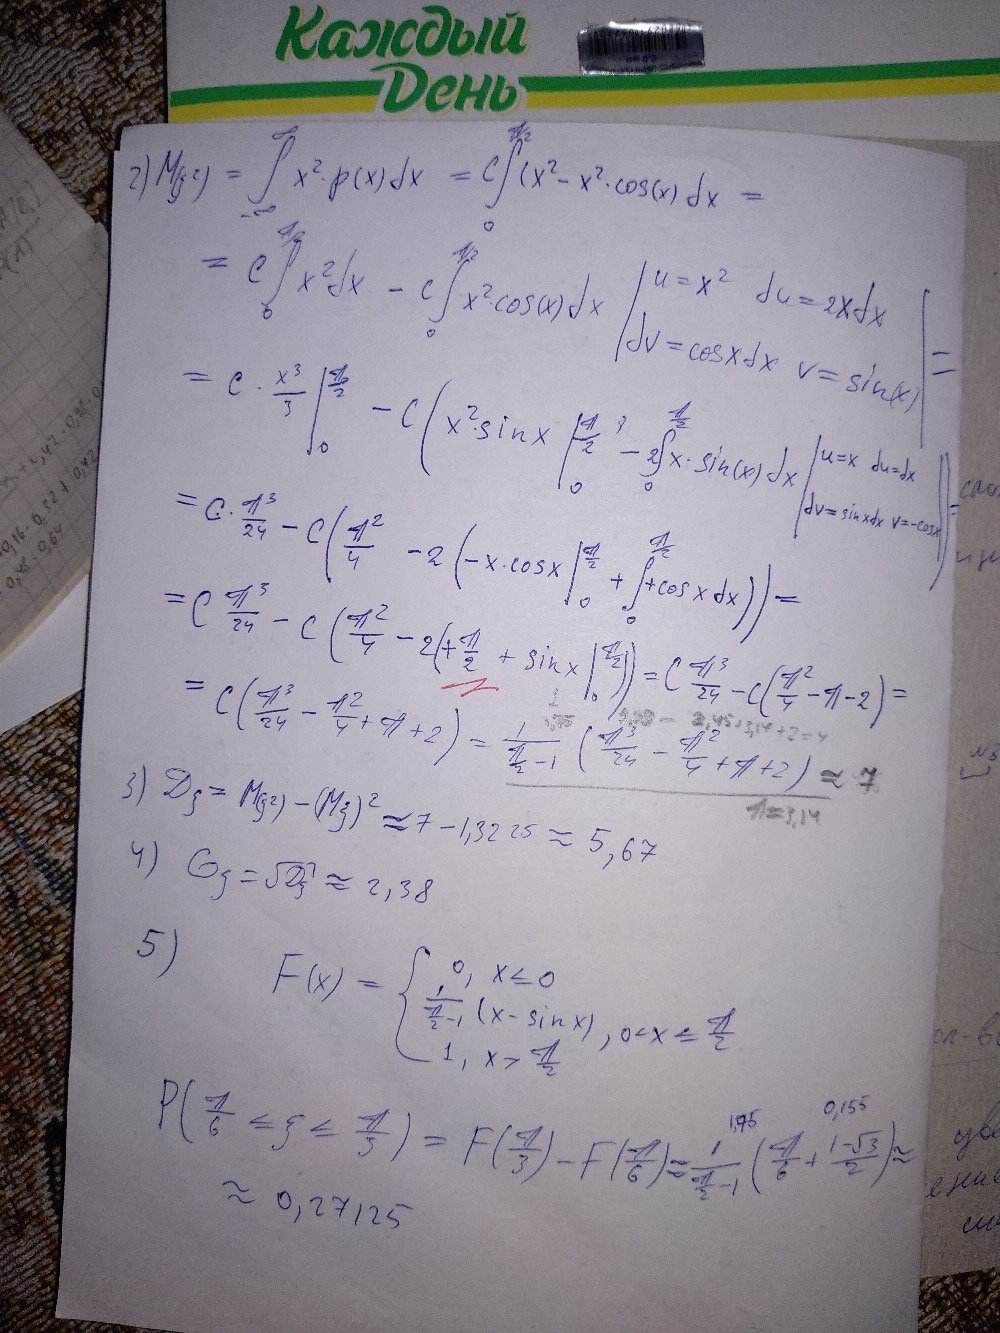 Каждый
День
2) M(ξ²) = ∫_{-∞}^{∞} x²·p(x)dx = C∫_0^{π/2} (x² - x²·cos(x) dx =
= C∫_0^{π/2} x²dx - C∫_0^{π/2} x²·cos(x)dx | u = x² du = 2xdx
dv = cosxdx v = sin(x) | =
= C · x³/3 |_0^{π/2} - C(x²·sinx |_0^{π/2} - 2∫_0^{π/2} x·sin(x)dx | u=x du=dx
dv=sinxdx v=-cosx |) =
= C·π³/24 - C(π²/4 - 2(-x·cosx |_0^{π/2} + ∫_0^{π/2} +cosx dx)) =
= C π³/24 - C(π²/4 - 2(+π/2 + sinx |_0^{π/2})) = C π³/24 - C(π²/4 - π - 2) =
= C(π³/24 - π²/4 + π + 2) = 1/(π/2 - 1) (π³/24 - π²/4 + π + 2) ≈ 7
π=3,14
3) Dξ = M(ξ²) - (Mξ)² ≈ 7 - 1,3225 ≈ 5,67
4) σξ = √Dξ ≈ 2,38
5)
F(x) = { 0, x ≤ 0
1/(π/2 - 1) (x - sinx), 0 < x ≤ π/2
1, x > π/2
1,75 0,155
P(π/6 ≤ ξ ≤ π/3) = F(π/3) - F(π/6) ≈ 1/(π/2 - 1) (π/6 + (1-√3)/2) ≈
≈ 0,27125